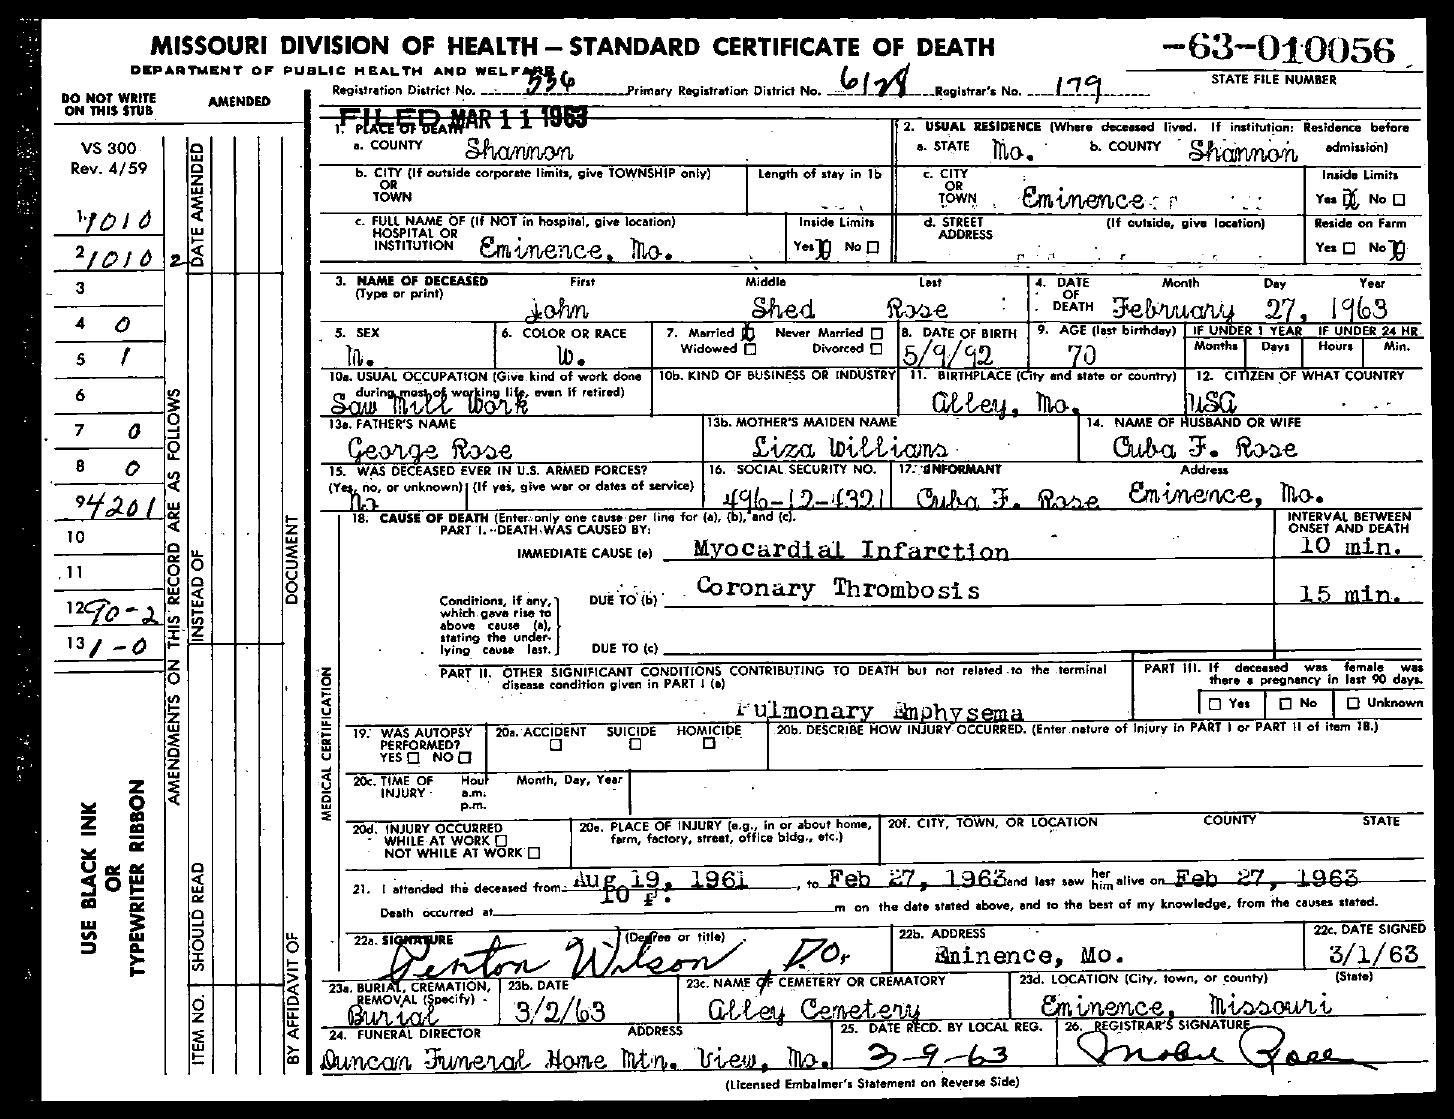 MISSOURI DIVISION OF HEALTH — STANDARD CERTIFICATE OF DEATH
-63-010056
DEPARTMENT OF PUBLIC HEALTH AND WELFARE
STATE FILE NUMBER
Registration District No. 556 Primary Registration District No. 6128 Registrar's No. 179
DO NOT WRITE ON THIS STUB
AMENDED
FILED MAR 11 1963
VS 300
Rev. 4/59
1. 1010
2 1010 2
3
4 0
5 1
6
7 0
8 0
9 4201
10
11
12 90-2
13 1-0
USE BLACK INK
OR
TYPEWRITER RIBBON
AMENDMENTS ON THIS RECORD ARE AS FOLLOWS
DATE AMENDED
INSTEAD OF
SHOULD READ
ITEM NO.
DOCUMENT
BY AFFIDAVIT OF
MEDICAL CERTIFICATION
1. PLACE OF DEATH
a. COUNTY Shannon
2. USUAL RESIDENCE (Where deceased lived. If institution: Residence before admission)
a. STATE Mo. b. COUNTY Shannon
b. CITY (If outside corporate limits, give TOWNSHIP only)
OR
TOWN
Length of stay in 1b
c. CITY
OR
TOWN Eminence
Inside Limits
Yes No
c. FULL NAME OF (If NOT in hospital, give location)
HOSPITAL OR
INSTITUTION Eminence, Mo.
Inside Limits
Yes No
d. STREET (If outside, give location)
ADDRESS
Reside on Farm
Yes No
3. NAME OF DECEASED First Middle Last
(Type or print)
John Shed Rose
4. DATE Month Day Year
OF
DEATH February 27, 1963
5. SEX
M.
6. COLOR OR RACE
W.
7. Married Never Married
Widowed Divorced
8. DATE OF BIRTH
5/9/92
9. AGE (last birthday)
70
IF UNDER 1 YEAR IF UNDER 24 HR
Months Days Hours Min.
10a. USUAL OCCUPATION (Give kind of work done
during most of working life, even if retired)
Saw Mill Work
10b. KIND OF BUSINESS OR INDUSTRY
11. BIRTHPLACE (City and state or country)
Alley, Mo.
12. CITIZEN OF WHAT COUNTRY
USA
13a. FATHER'S NAME
George Rose
13b. MOTHER'S MAIDEN NAME
Liza Willians
14. NAME OF HUSBAND OR WIFE
Cuba F. Rose
15. WAS DECEASED EVER IN U.S. ARMED FORCES?
(Yes, no, or unknown) (If yes, give war or dates of service)
No
16. SOCIAL SECURITY NO.
496-12-4321
17. INFORMANT Address
Cuba F. Rose Eminence, Mo.
18. CAUSE OF DEATH (Enter only one cause per line for (a), (b), and (c).
PART I. DEATH WAS CAUSED BY:
INTERVAL BETWEEN
ONSET AND DEATH
IMMEDIATE CAUSE (a) Myocardial Infarction 10 min.
Conditions, if any,
which gave rise to
above cause (a),
stating the under-
lying cause last.
DUE TO (b) Coronary Thrombosis 15 min.
DUE TO (c)
PART II. OTHER SIGNIFICANT CONDITIONS CONTRIBUTING TO DEATH but not related to the terminal
disease condition given in PART I (a)
Pulmonary Emphysema
PART III. If deceased was female was
there a pregnancy in last 90 days.
Yes No Unknown
19. WAS AUTOPSY
PERFORMED?
YES NO
20a. ACCIDENT SUICIDE HOMICIDE
20b. DESCRIBE HOW INJURY OCCURRED. (Enter nature of injury in PART I or PART II of item 18.)
20c. TIME OF Hour Month, Day, Year
INJURY a.m.
p.m.
20d. INJURY OCCURRED
WHILE AT WORK
NOT WHILE AT WORK
20e. PLACE OF INJURY (e.g., in or about home,
farm, factory, street, office bldg., etc.)
20f. CITY, TOWN, OR LOCATION COUNTY STATE
21. I attended the deceased from Aug 19, 1961, to Feb 27, 1963 and last saw her him alive on Feb 27, 1963
Death occurred at 10 P. m on the date stated above, and to the best of my knowledge, from the causes stated.
22a. SIGNATURE (Degree or title)
Fenton Wilson D.O.
22b. ADDRESS
Eminence, Mo.
22c. DATE SIGNED
3/1/63
23a. BURIAL, CREMATION,
REMOVAL (Specify)
Burial
23b. DATE
3/2/63
23c. NAME OF CEMETERY OR CREMATORY
Alley Cemetery
23d. LOCATION (City, town, or county) (State)
Eminence, Missouri
24. FUNERAL DIRECTOR ADDRESS
Duncan Funeral Home Mtn. View, Mo.
25. DATE RECD. BY LOCAL REG.
3-9-63
26. REGISTRAR'S SIGNATURE
Mabel
(Licensed Embalmer's Statement on Reverse Side)